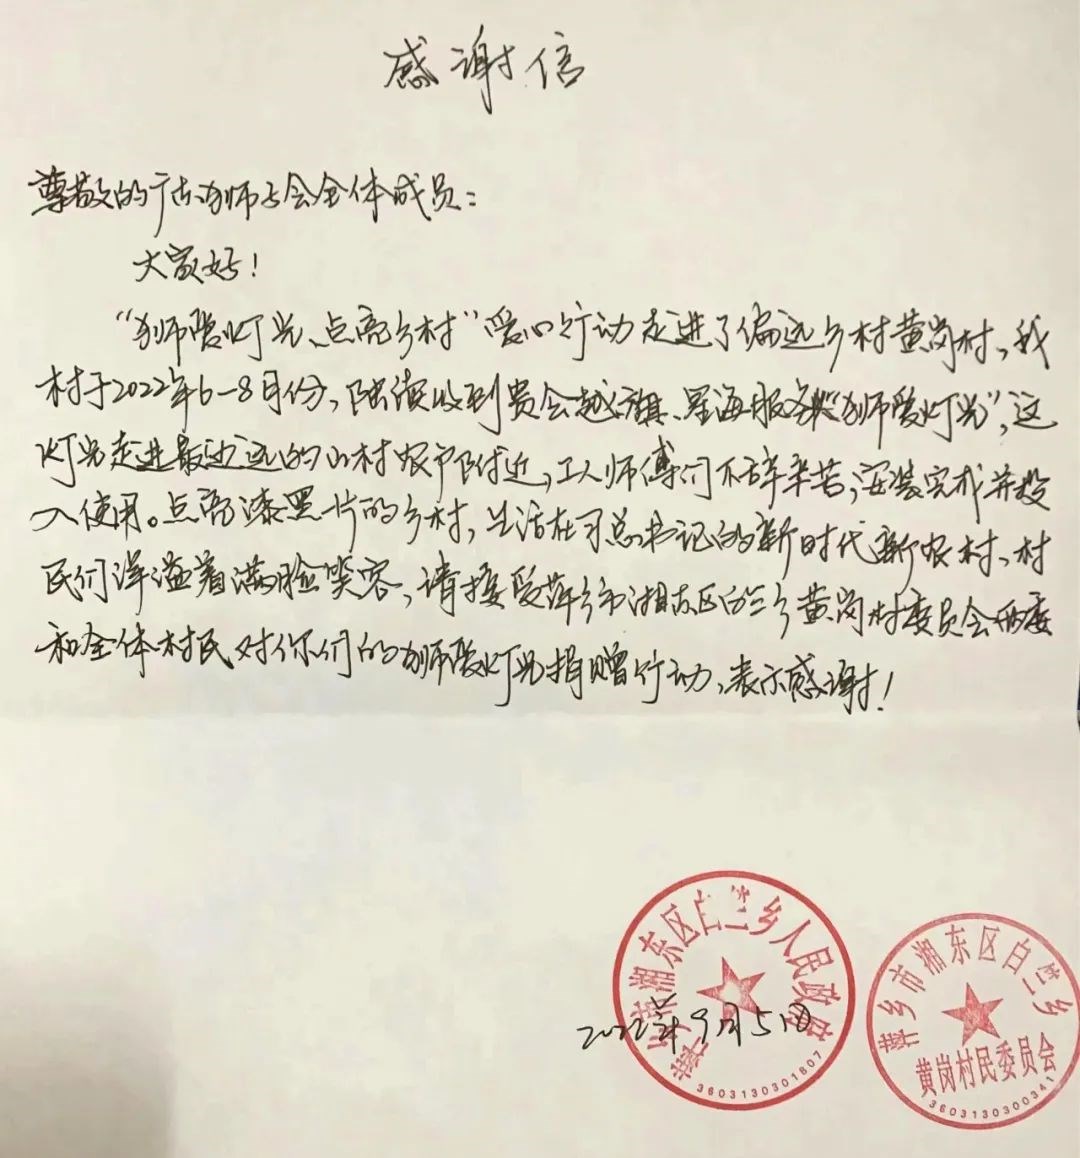 感谢信
尊敬的广东狮子会全体成员：
大家好！
“狮爱灯光、点亮乡村”爱心行动走进了偏远乡村黄岗村，我
村于2022年6-8月份，陆续收到贵会越旗、星海服务队“狮爱灯光”，这
灯光走进最边远的山村农户附近，工人师傅们不辞辛苦，安装完成并投
入使用。点亮漆黑片的乡村，生活在习总书记的新时代新农村，村
民们洋溢着满脸笑容，请接受萍乡市湘东区白竺乡黄岗村委员会两委
和全体村民对你们的狮爱灯光捐赠行动、表示感谢！
萍乡市湘东区白竺乡人民政府
2022年9月5日
3603130301807
萍乡市湘东区白竺乡
黄岗村民委员会